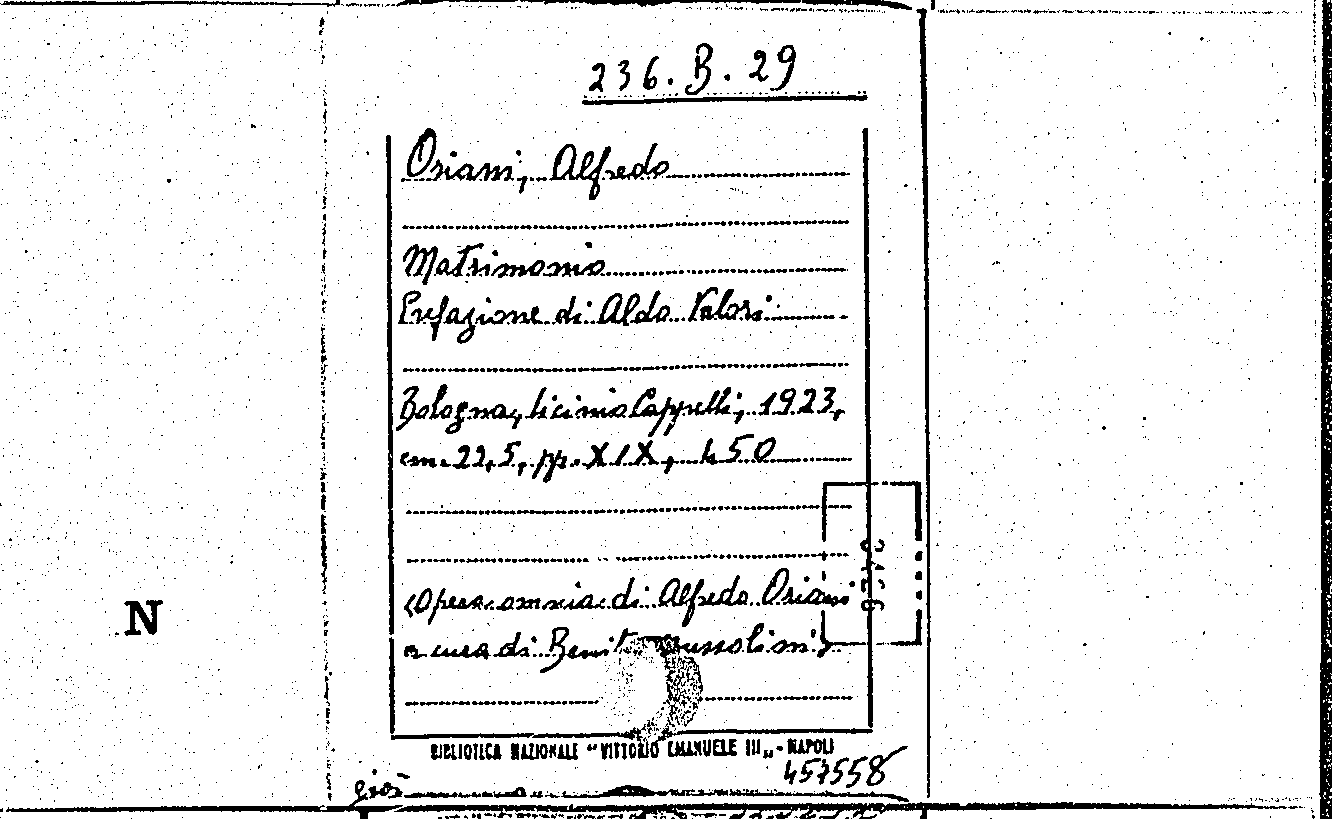 236.B.29
Oriani, Alfredo
Matrimonio
Prefazione di Aldo Valori
Bologna, Licinio Cappelli, 1923,
cm. 22,5, pp. XIX, 450
N
(Opera omnia di Alfredo Oriani
a cura di Benito Mussolini)
BIBLIOTECA NAZIONALE "VITTORIO EMANUELE III„ - NAPOLI
457558